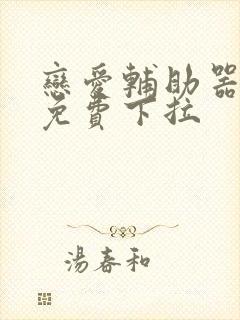 戀愛輔助器
免費下拉
湯春和